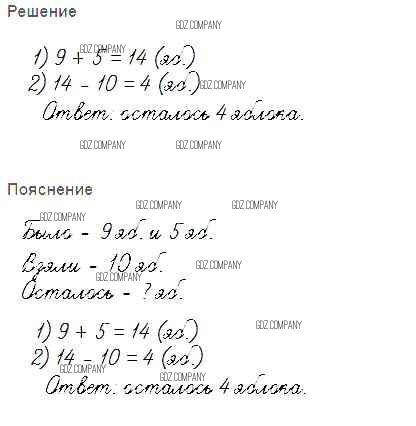 Решение
GDZ.COMPANY
GDZ.COMPANY
1) 9 + 5 = 14 (яб.)
2) 14 - 10 = 4 (яб.)
GDZ.COMPANY
Ответ: осталось 4 яблока.
GDZ.COMPANY GDZ.COMPANY
Пояснение
GDZ.COMPANY GDZ.COMPANY
GDZ.COMPANY
Было - 9 яб. и 5 яб.
Взяли - 10 яб.
GDZ.COMPANY
GDZ.COMPANY
Осталось - ? яб.
GDZ.COMPANY
1) 9 + 5 = 14 (яб.)
2) 14 - 10 = 4 (яб.)
GDZ.COMPANY
GDZ.COMPANY
Ответ: осталось 4 яблока.